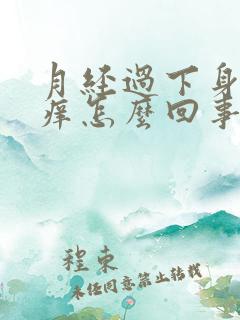 月经過下身
痒怎麽回事
程束
未经同意禁止转载